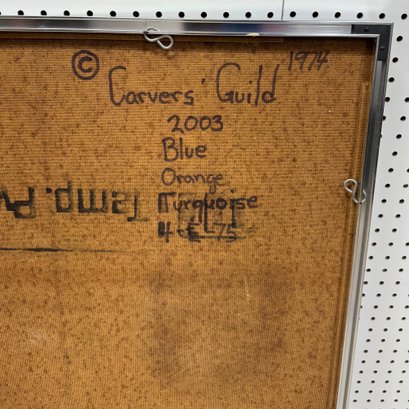 © Carvers' Guild 1974
2003
Blue
Orange
Turquoise
4-E-75
Tamp.